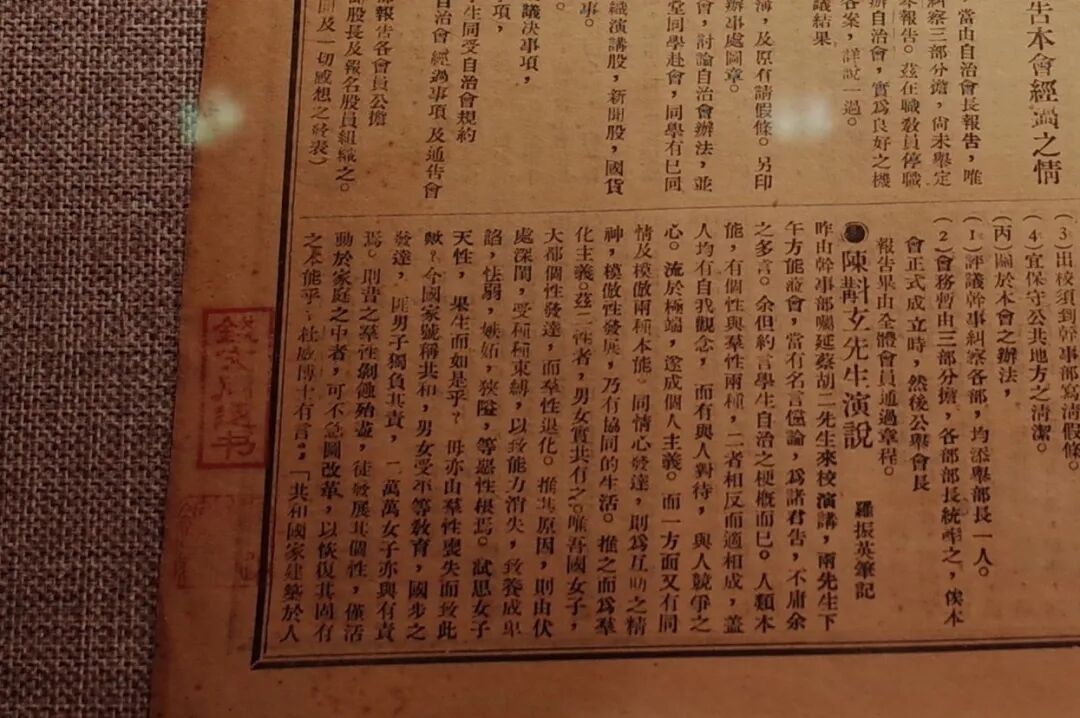 告本會經過之情
當由自治會長報告，唯
糾察三部分擔，尚未舉定
報告。茲在職教員停職
辦自治會，實爲良好之機
各案，詳說一過。
議結果
簿，及原有請假條。另印
辦事處圖章。
會，討論自治會辦法，並
堂同學赴會，同學有已回
織演講股，新聞股，國貨
事。
議决事項，
項，
生同受自治會規約
自治會經過事項及通告會
報告各會員公擔
股長及報名股員組織之。
及一切感想之發表）
（3）出校須到幹事部寫請假條。
（4）宜保守公共地方之清潔。
（丙）關於本會之辦法，
（1）評議幹事糾察各部，均添舉部長一人。
（2）會務暫由三部分擔，各部部長統率之，俟本
會正式成立時，然後公舉會長
報告畢由全體會員通過章程。
陳斠玄先生演說
羅振英筆記
昨由幹事部囑延蔡胡二先生來校演講，兩先生下
午方能蒞會，當有名言讜論，爲諸君告，不庸余
之多言。余但約言學生自治之梗概而已。人類本
能，有個性與羣性兩種，二者相反而適相成，蓋
人均有自我觀念，而有與人對待，與人競爭之
心。流於極端，遂成個人主義。而一方面又有同
情及模倣兩種本能。同情心發達，則爲互助之精
神，模倣性發展，乃有協同的生活。推之而爲羣
化主義。茲二性者，男女實共有之。唯吾國女子，
大都個性發達，而羣性退化。推其原因，則由伏
處深閨，受種種束縛，以致能力消失，致養成卑
諂，怯弱，嫉妬，狹隘，等惡性根焉。試思女子
天性，果生而如是乎？毋亦由羣性喪失而致此
歟？今國家號稱共和，男女受平等敎育，國步之
發達，匪男子獨負其責，二萬萬女子亦與有責
焉。則昔之羣性剝蝕殆盡，徒發展其個性，僅活
動於家庭之中者，可不急圖改革，以恢復其固有
之本能乎？杜威博士有言。「共和國家建築於人